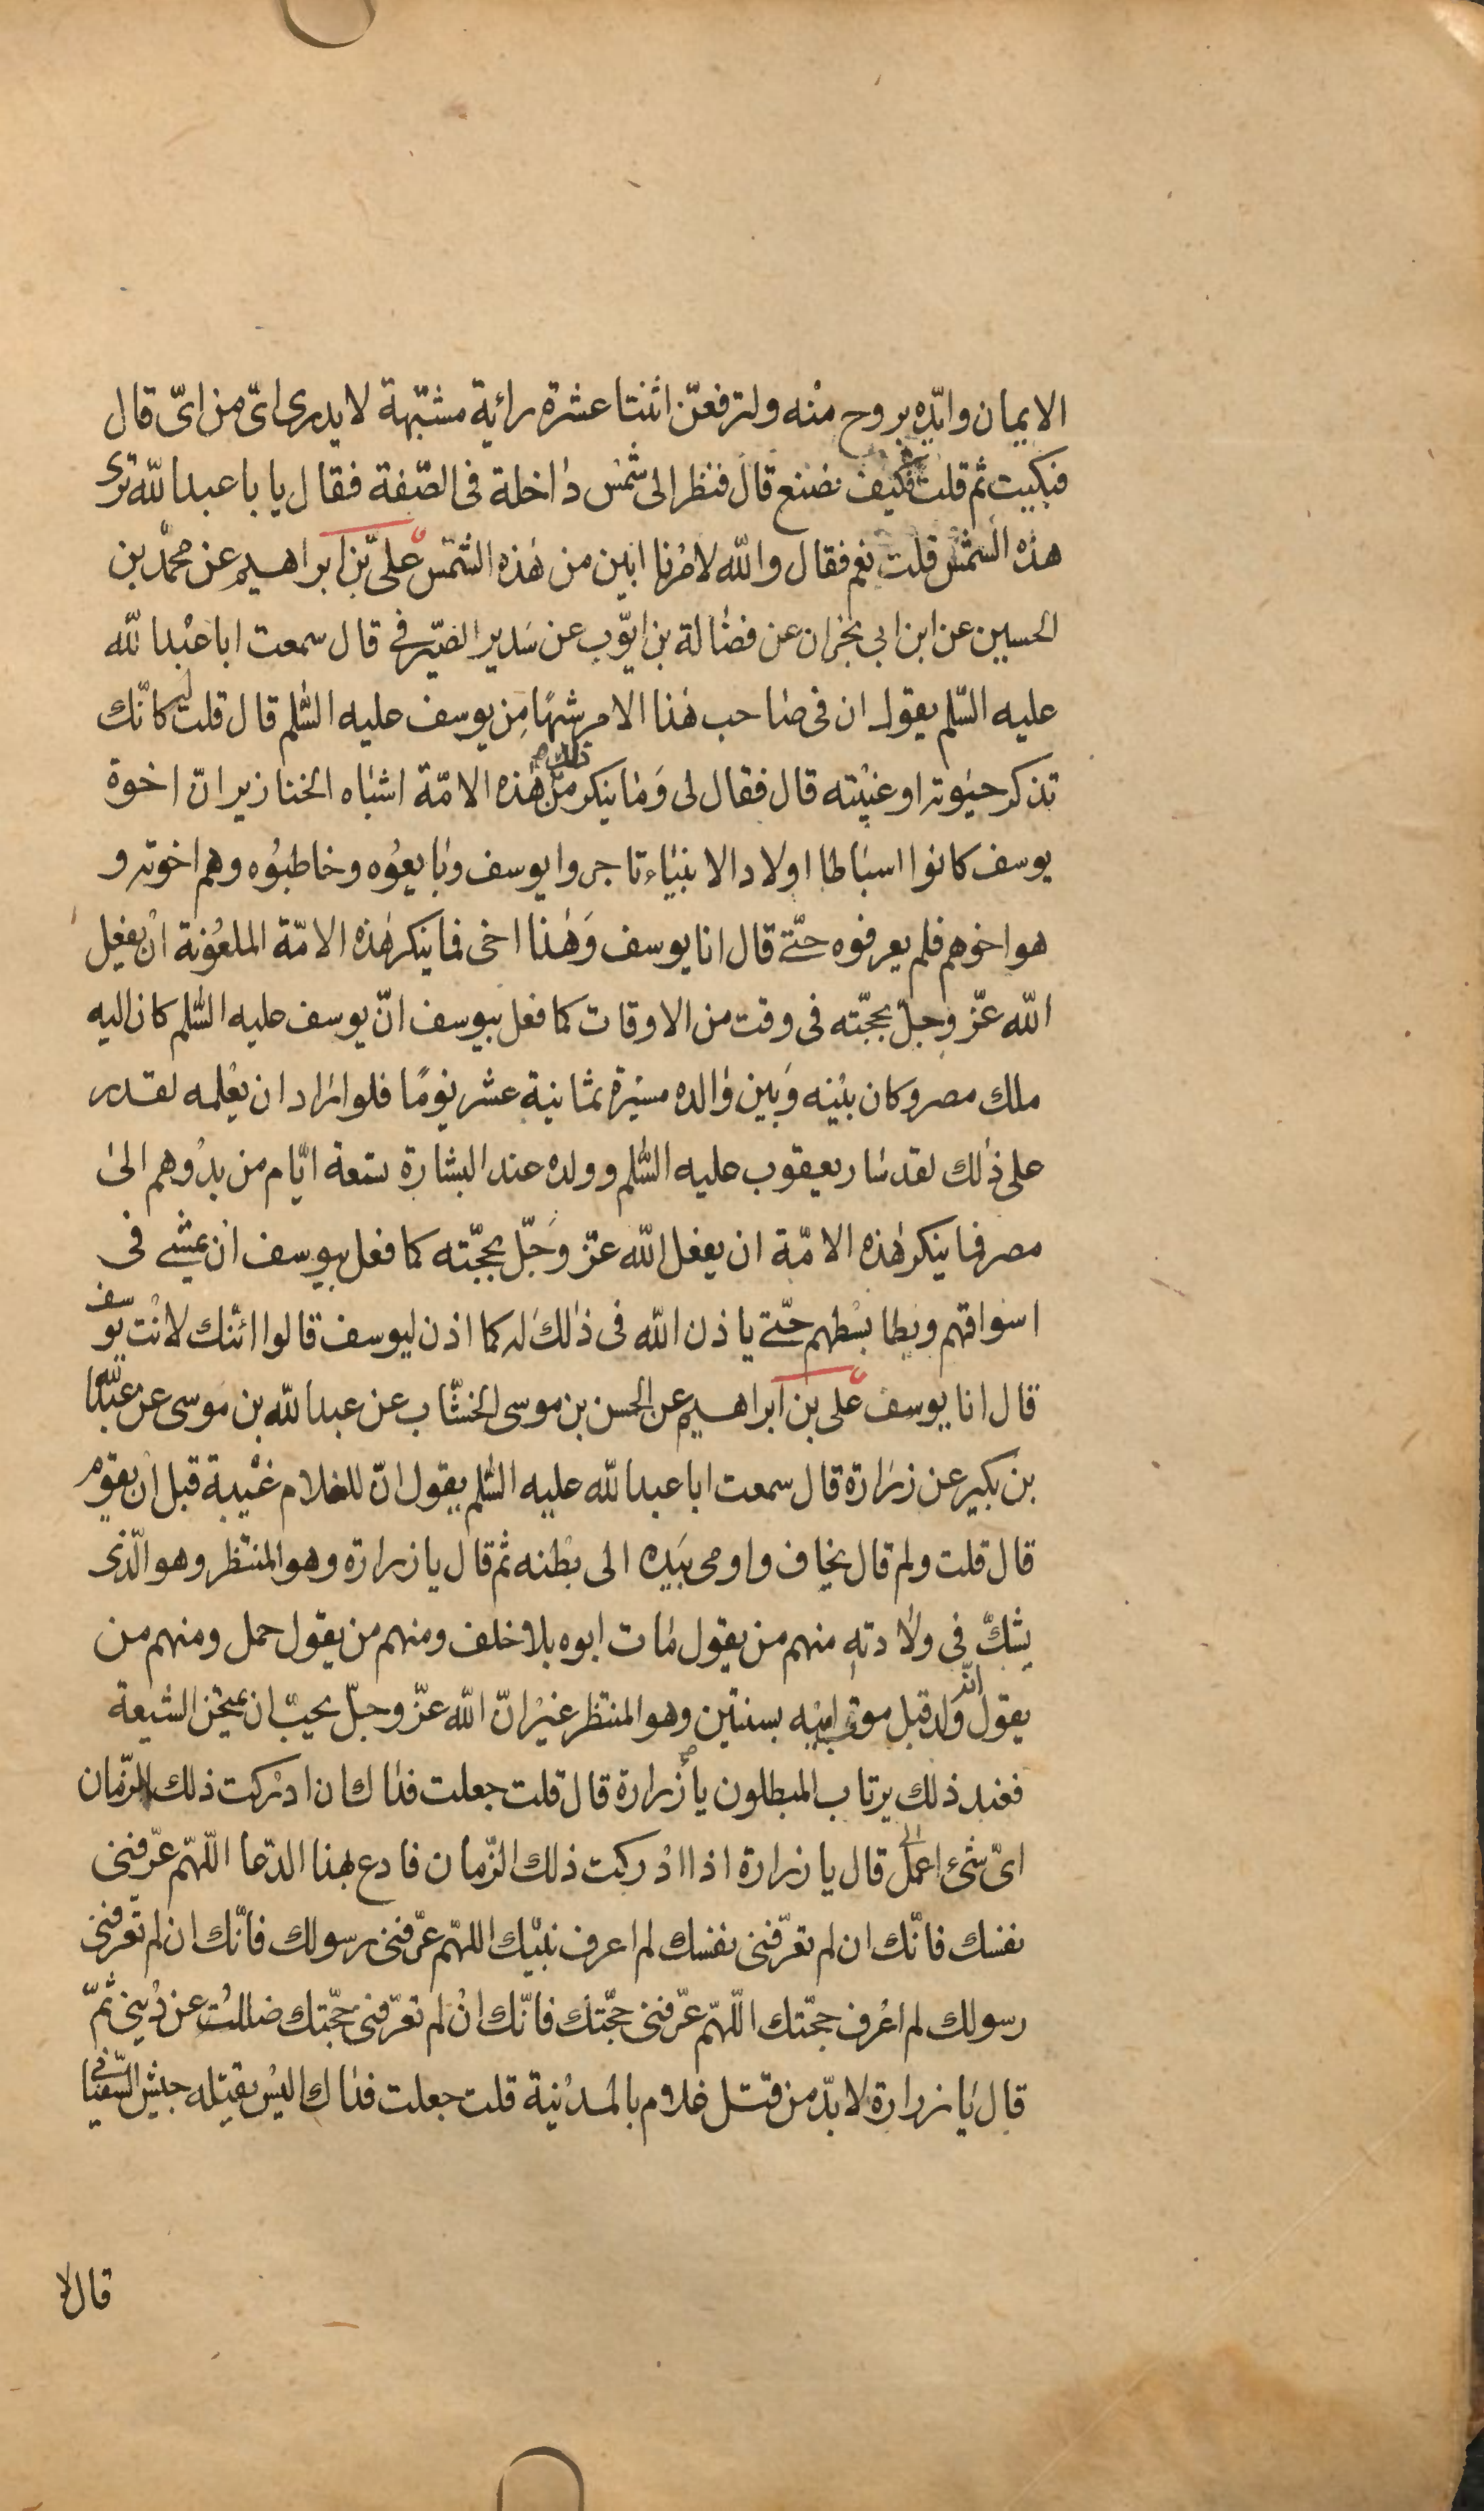 الايمان وايّده بروح منه ولترفعنّ اثنتا عشرة رائية مشتبهة لا يدرى اىّ من اىّ قال
فبكيت ثم قلت فكيف نصنع قال فنظر الى شمس داخلة فى الصّفة فقال يا با عبد الله ترى
هذه الشمس قلت نعم فقال والله لامرنا ابين من هذه الشمس علىّ بن ابراهيم عن محمّد بن
الحسين عن ابن ابى نجران عن فضالة بن ايّوب عن سَدير الصّيرفى قال سمعت ابا عبد الله
عليه السّلم يقول ان فى صاحب هذا الامر شبهًا مِن يوسف عليه السّلم قال قلت له كانّك
تذكر حيوته او غيبته قال فقال لى وَما ينكر من ذلك هذه الامّة اشباه الخنازير انّ اخوة
يوسف كانوا اسباطا اولاد الانبياء تاجروا يوسف وبايعوُه وخاطبوُه وهم اخوته و
هو اخوهم فلم يعرفوه حتّى قال انا يوسف وَهذا اخى فما ينكر هذه الامّة الملعوُنة ان يفعل
الله عزّ وجلّ بحجّته فى وقت من الاوقات كما فعل بيوسف انّ يوسف عليه السّلم كان اليه
ملك مصر وكان بيْنه وَبين والده مسيْرة ثمانية عشر يومًا فلو اراد ان يعْلمه لقدر
على ذلك لقد سار يعقوب عليه السّلم وولده عند البشارة تسعة ايّام من بدْوهم الى
مصر فما ينكر هذه الامّة ان يفعل الله عزّ وَجلّ بحجّته كما فعل بيوسف ان يمشى فى
اسواقهم ويطا بسْطهم حتّى ياذن الله فى ذلك له كما اذن ليوسف قالوا ائنك لانت يوسف
قال انا يوسف على بن ابراهيم عن الحسن بن موسى الخشّاب عن عبد الله بن موسى عن عبد الله
بن بكير عن زرارة قال سمعت ابا عبد الله عليه السّلم يقول انّ للغلام غيْبة قبل ان يقوم
قال قلت ولم قال يخاف واومى بيَده الى بطْنه ثم قال يا زرارة وهو المنتظر وهو الّذى
يشكّ فى ولادته منهم من يقول مات ابوه بلا خلف ومنهم من يقول حمل ومنهم من
يقول انّه ولد قبل موت ابيْه بسنتين وهو المنتظر غيْر انّ الله عزّ وجلّ يحبّ ان يمتحن الشيعة
فعند ذلك يرتاب المبطلون يا زرارة قال قلت جعلت فداك ان ادركت ذلك الزّمان
اىّ شئ اعمل قال يا زرارة اذا ادْركت ذلك الزّمان فادع بهذا الدّعا اللّهمّ عرّفنى
نفسك فانّك ان لم تعرّفنى نفسك لم اعرف نبيّك اللهمّ عرّفنى رسولك فانّك ان لم تعرّفنى
رسولك لم اعْرف حجّتك اللّهمّ عرّفنى حجّتك فانّك انْ لم تعرّفنى حجّتك ضللت عن دينى ثمّ
قال يا زرارة لا بدّ من قتل غلام بالمديْنة قلت جعلت فداك اليْس يقتله جيش السّفيانى
قال لا